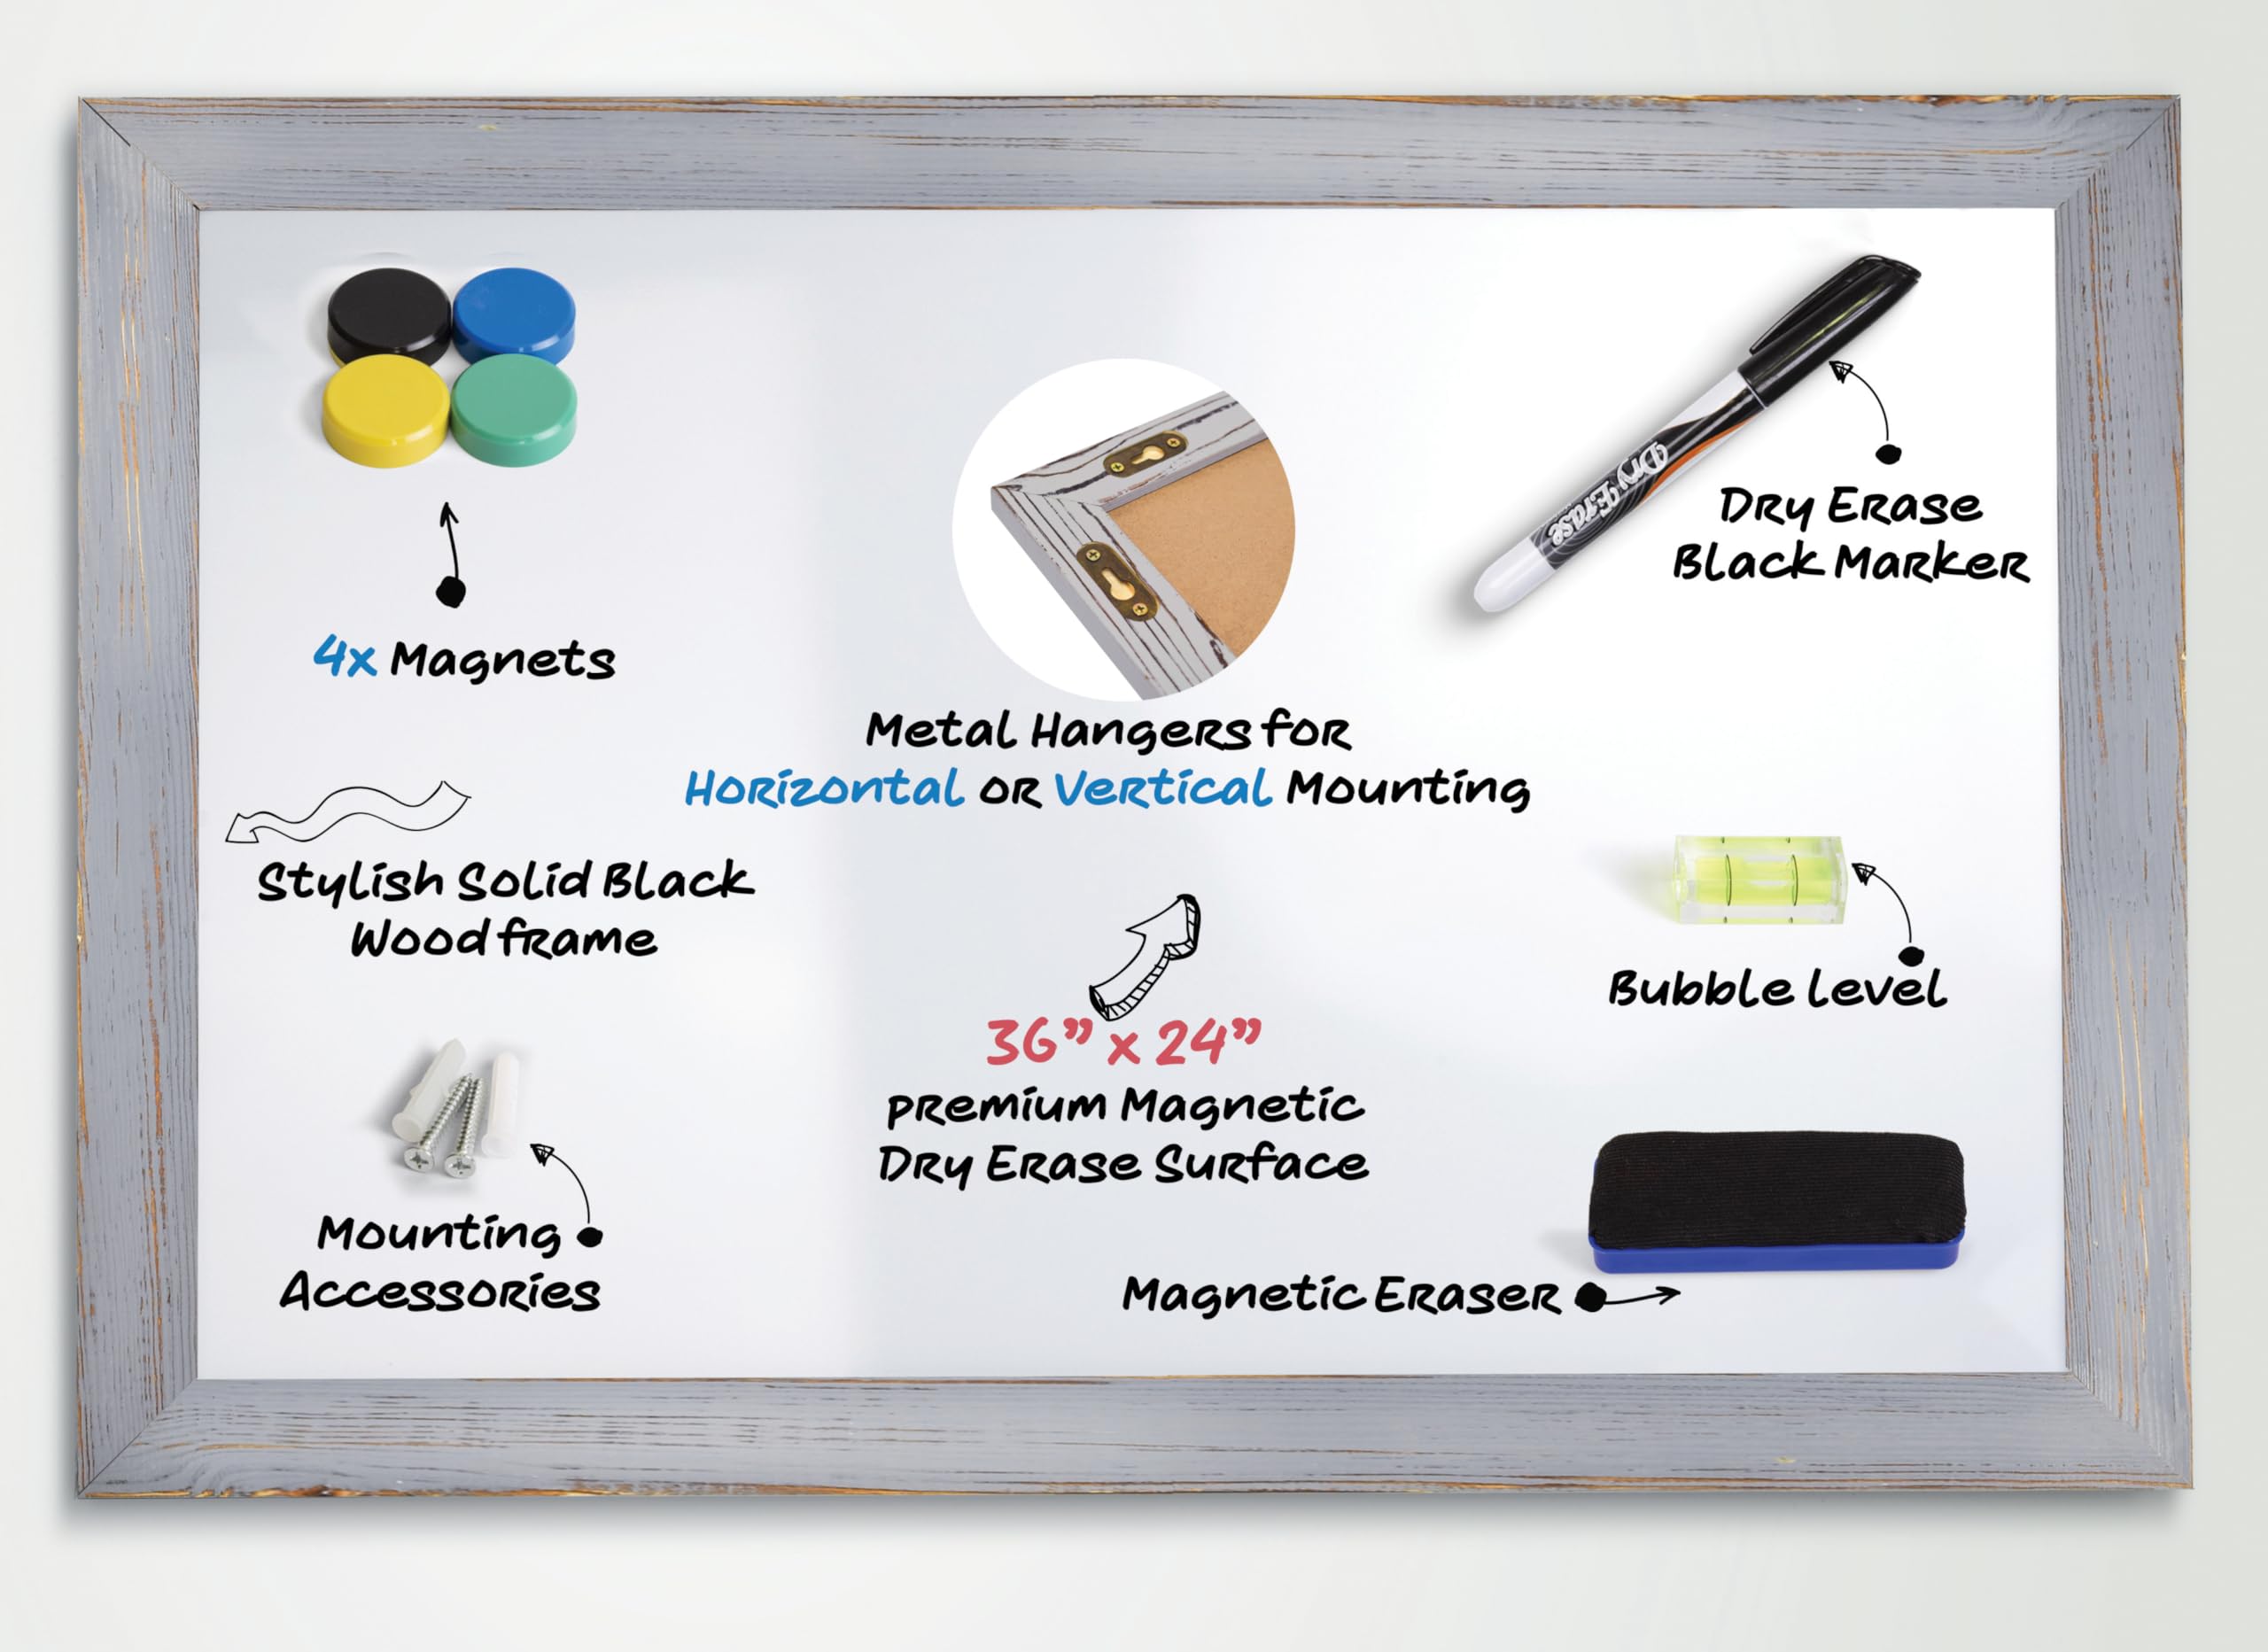 Dry Erase
Dry Erase
Black Marker
4x Magnets
Metal Hangers for
Horizontal or Vertical Mounting
Stylish Solid Black
Wood frame
Bubble level
36” x 24”
premium Magnetic
Dry Erase Surface
Mounting
Accessories
Magnetic Eraser